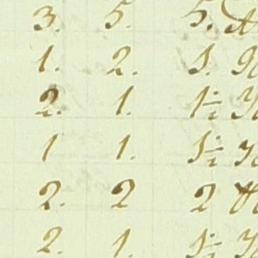 3. 5. 5.
1. 2. 1.
2. 1. 1½
1 1. 1½
2. 2 2
2. 1. 1½